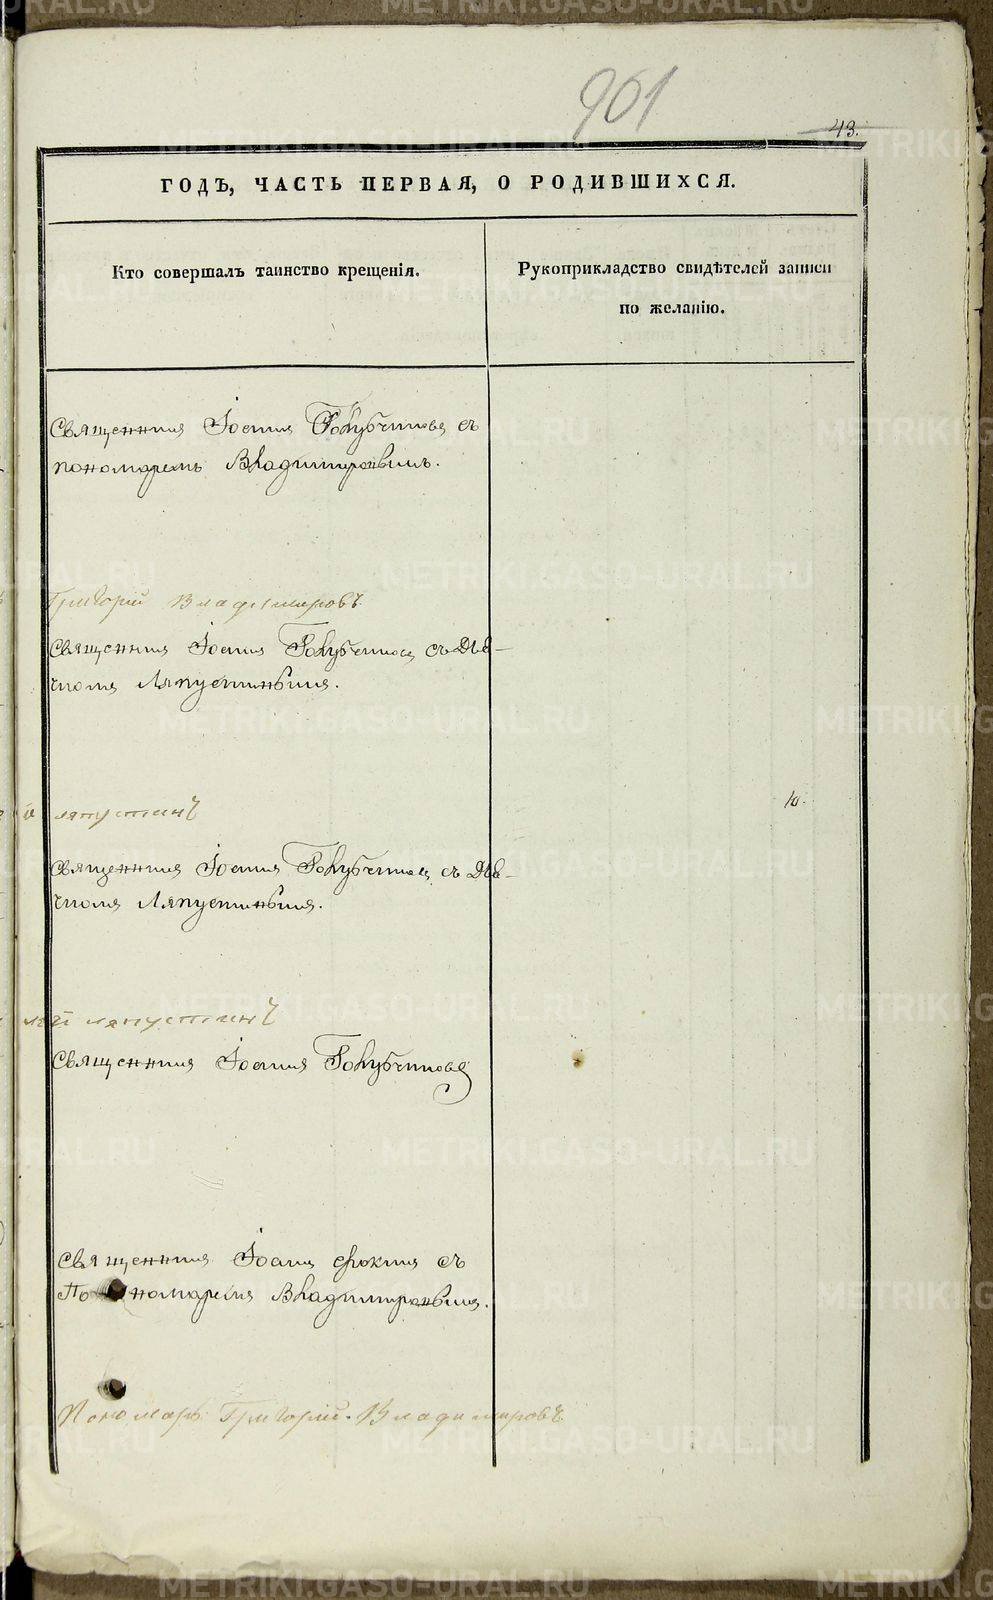 901
43.
ГОДЪ, ЧАСТЬ ПЕРВАЯ, О РОДИВШИХСЯ.
Кто совершалъ таинство крещенія.
Рукоприкладство свидѣтелей записи
по желанію.
Священникъ Іоаннъ Голубчиковъ съ
пономаремъ Владимировымъ.
Григорій Владимировъ
Священникъ Іоаннъ Голубчиковъ съ Дья-
чкомъ Ляпустинымъ.
й ляпустинъ
Священникъ Іоаннъ Голубчиковъ съ Дья-
чкомъ Ляпустинымъ.
й ляпустинъ
Священникъ Іоаннъ Голубчиковъ
Священникъ Іоаннъ съ
Пономаремъ Владимировымъ.
Пономарь Григорій Владимировъ
METRIKI.GASO-URAL.RU